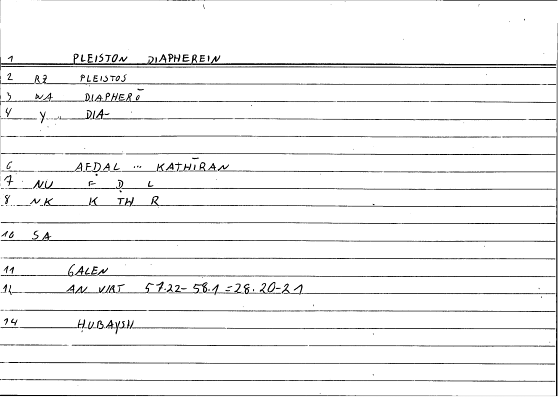 1 PLEISTON DIAPHEREIN
2 RZ PLEISTOS
3 WA DIAPHERŌ
4 Y DIA-
6 AFḌAL ... KATHĪRAN
7 NU F Ḍ L
8 NK K TH R
10 SA
11 GALEN
12 AN VIRT 57.22-58.1 = 28.20-21
14 ḤUBAYSH